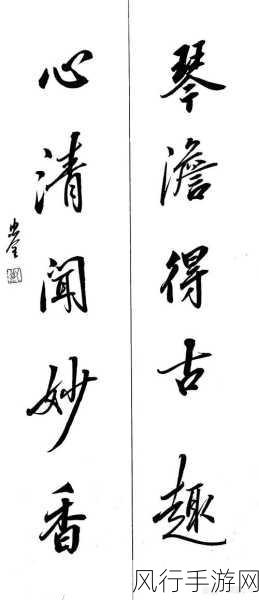 琴澹得古趣
心清闻妙香
风行手游网